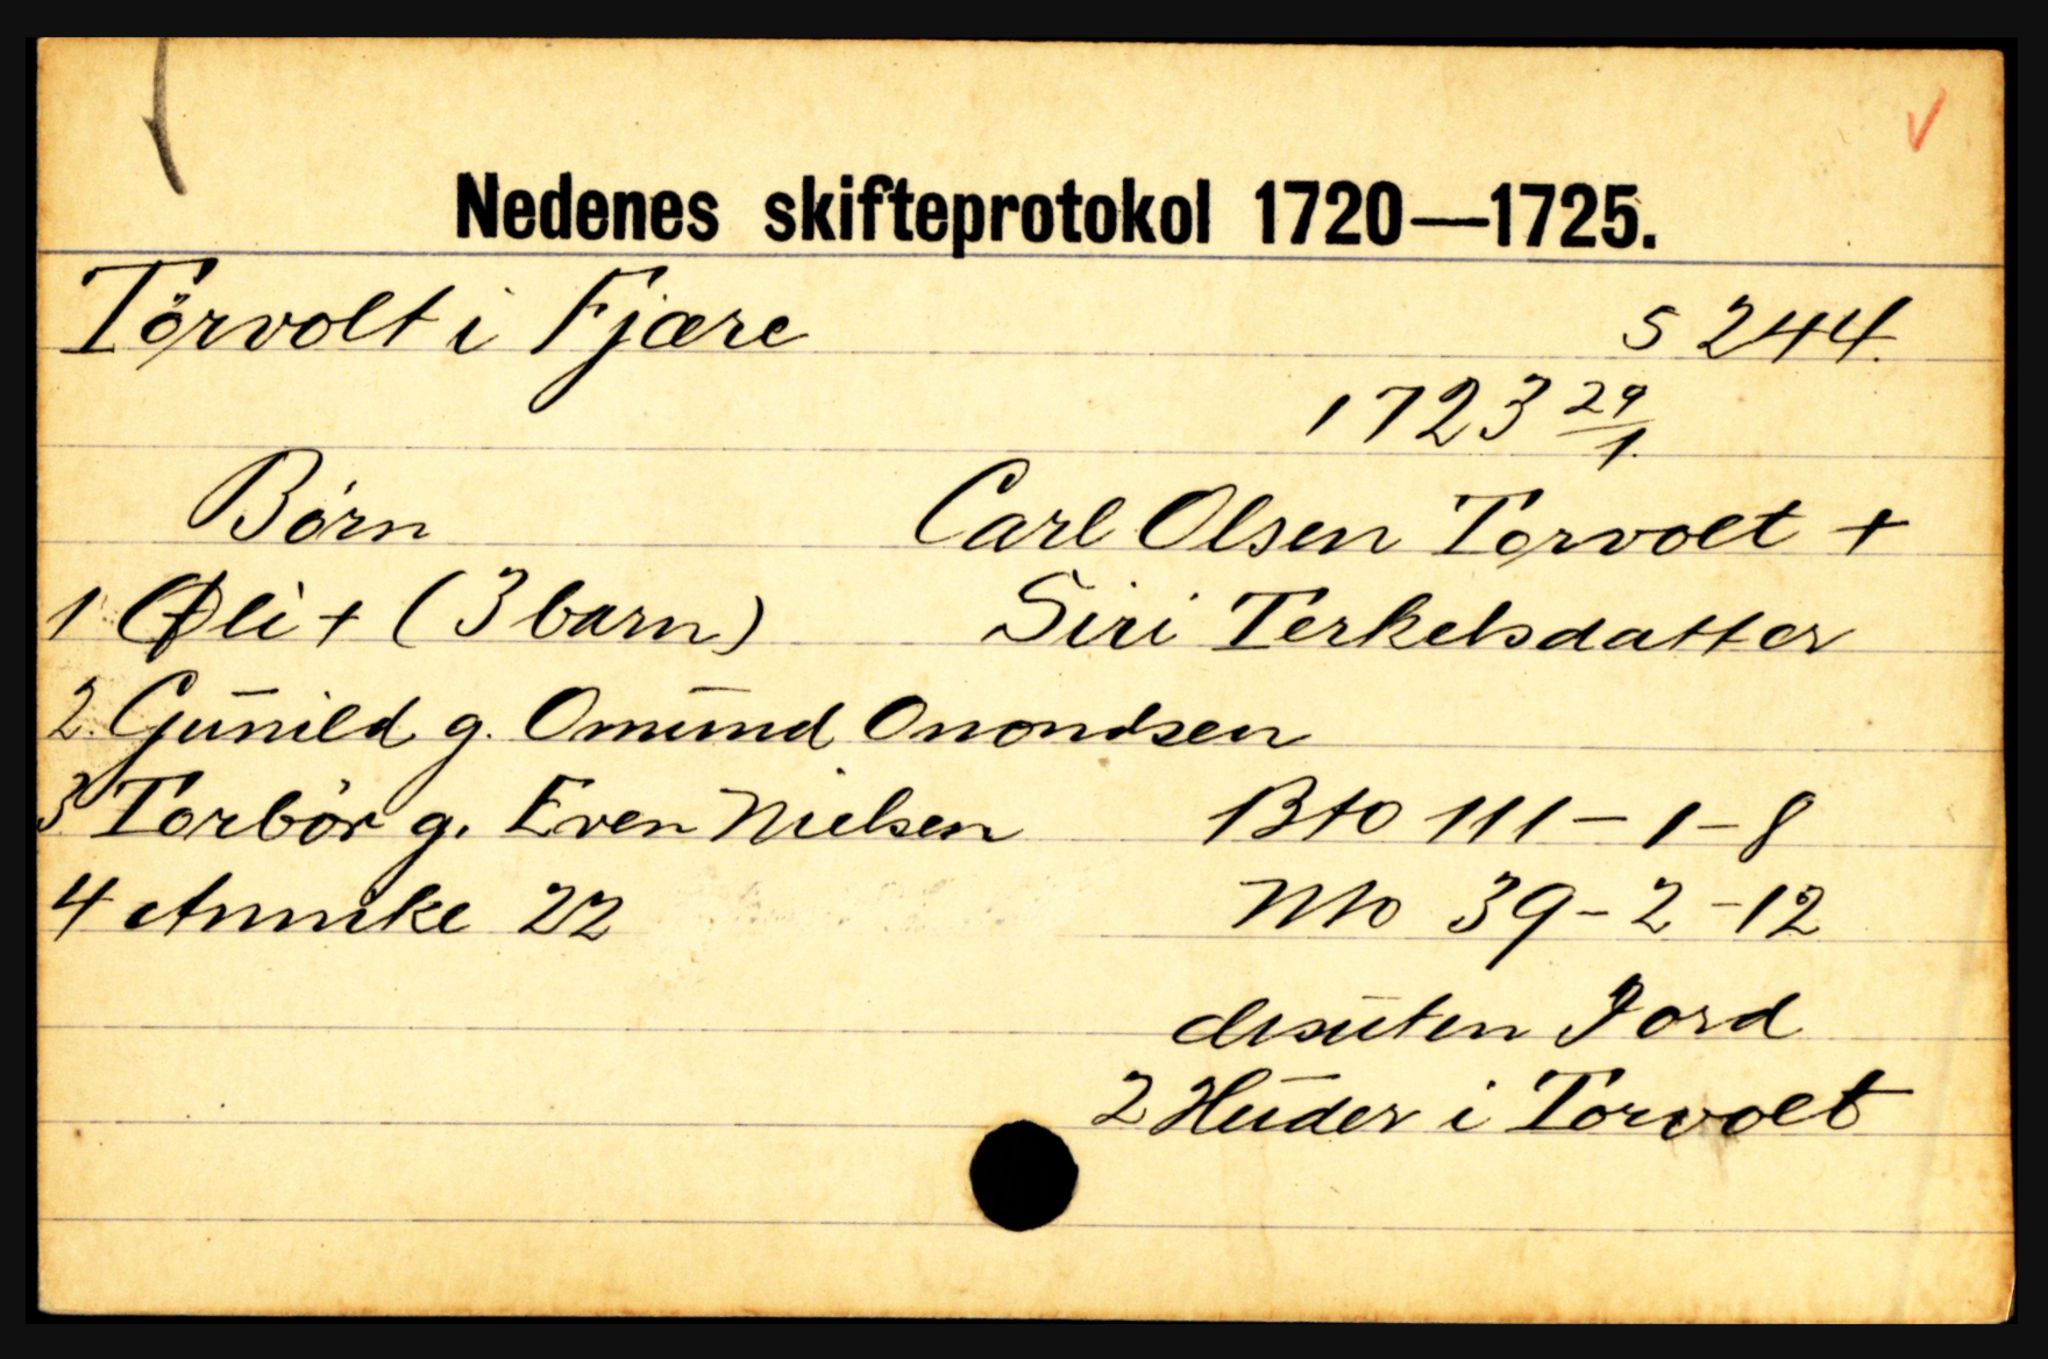 Nedenes skifteprotokol 1720—1725.
Törvolt i Fjære s 244.
1723 29/1.
Børn Carl Olsen Torvolt +
1 Øli + (3 barn) Siri Terkelsdatter
2. Gunild g. Omund Onondsen
3 Torbør g. Even Nielsen Bto 111-1-8
4 Annike 22 Nto 39-2-12
desuten Jord
2 Huder i Torvolt